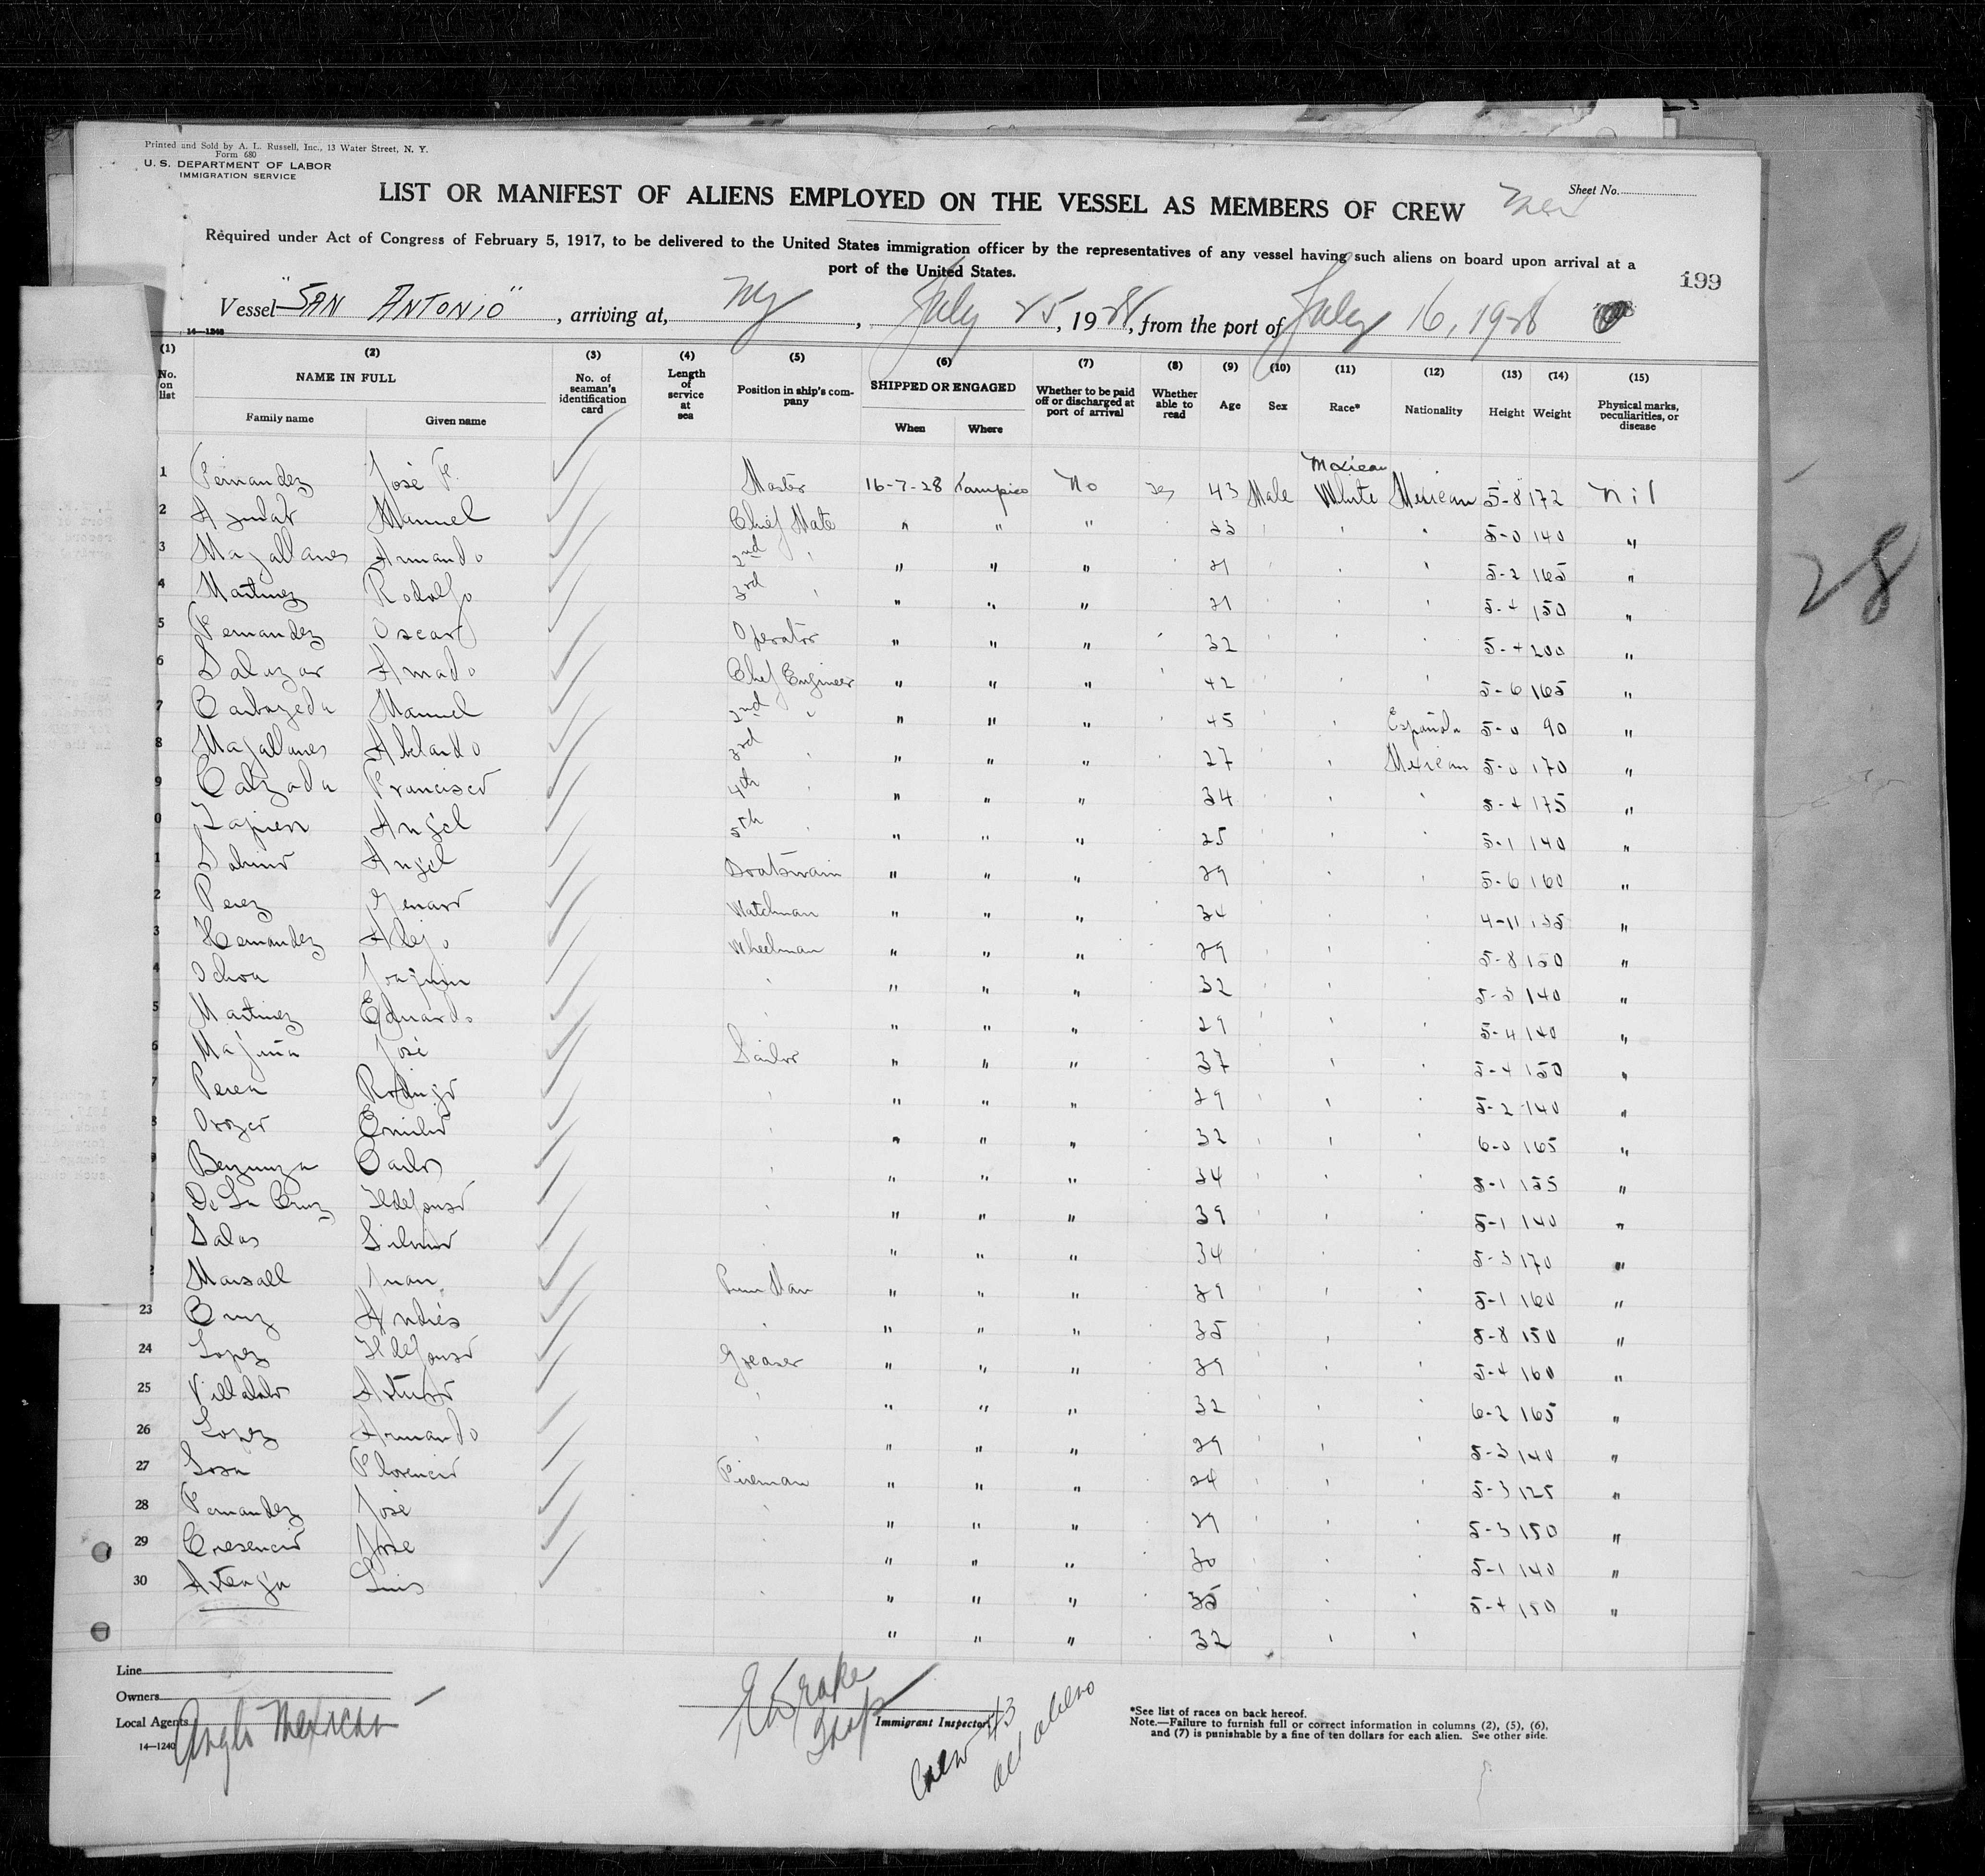 Printed and Sold by A. L. Russell, Inc., 13 Water Street, N. Y.
Form 680
U. S. DEPARTMENT OF LABOR
IMMIGRATION SERVICE
Sheet No.
LIST OR MANIFEST OF ALIENS EMPLOYED ON THE VESSEL AS MEMBERS OF CREW
Required under Act of Congress of February 5, 1917, to be delivered to the United States immigration officer by the representatives of any vessel having such aliens on board upon arrival at a
port of the United States.
199
Vessel "SAN ANTONIO", arriving at, NY, July 25, 1928, from the port of July 16, 1928
14—1240
(1) (2) (3) (4) (5) (6) (7) (8) (9) (10) (11) (12) (13) (14) (15)
No. on list NAME IN FULL No. of seaman's identification card Length of service at sea Position in ship's company SHIPPED OR ENGAGED Whether to be paid off or discharged at port of arrival Whether able to read Age Sex Race* Nationality Height Weight Physical marks, peculiarities, or disease
Family name Given name When Where
Mexican
1 Fernandez José F. Master 16-7-28 Tampico No Yes 43 Male White Mexican 5-8 172 Nil
2 Aznar Manuel Chief Mate " " " 33 5-0 140 "
3 Magallanes Armando 2nd " " " 29 5-2 165 "
4 Martinez Rodolfo 3rd " " " 29 5-4 150 "
5 Fernandez Oscar Operator " " " 32 5-4 200 "
6 Salazar Amado Chief Engineer " " " 42 5-6 165 "
7 Manuel 2nd " " " " 45 Española 5-0 90 "
8 Magallanes Abelardo 3rd " " " 27 Mexican 5-0 170 "
9 Calzada Francisco 4th " " " 34 5-4 175 "
0 Tapien Angel 5th " " " 25 5-1 140 "
1 Angel Boatswain " " " 29 5-6 160 "
2 Perez Genaro Watchman " " " 34 4-11 135 "
3 Hernandez Alejo Wheelman " " " 29 5-8 150 "
4 Ochoa Joaquin " " " 32 5-3 140 "
5 Martinez Eduardo " " " 29 5-4 140 "
6 Magaña José Sailor " " " 37 5-4 150 "
7 Perea Rodrigo " " " 29 5-2 140 "
8 Orozco Emilio " " " 32 6-0 165 "
9 Berzunza Carlos " " " 34 5-1 155 "
0 De La Cruz Ildefonso " " " 39 5-1 140 "
1 Salas Silvino " " " 34 5-3 170 "
2 Marsall Juan Pum Man " " " 39 5-1 160 "
23 Cruz Andrés " " " 35 5-8 150 "
24 Lopez Ildefonso Greaser " " " 39 5-4 160 "
25 Villalobos Arturo " " " 32 6-2 165 "
26 Lopez Armando " " " 29 5-3 140 "
27 Sosa Florencio Fireman " " " 24 5-3 125 "
28 Fernandez José " " " 29 5-3 150 "
29 Cresencio Jose " " " 30 5-1 140 "
30 Luis " " " 35 5-4 150 "
" " " 32
28
Line
Owners
Local Agents Anglo Mexican
14—1240
Immigrant Inspector.
Crew 43
all aliens
*See list of races on back hereof.
Note.—Failure to furnish full or correct information in columns (2), (5), (6),
and (7) is punishable by a fine of ten dollars for each alien. See other side.